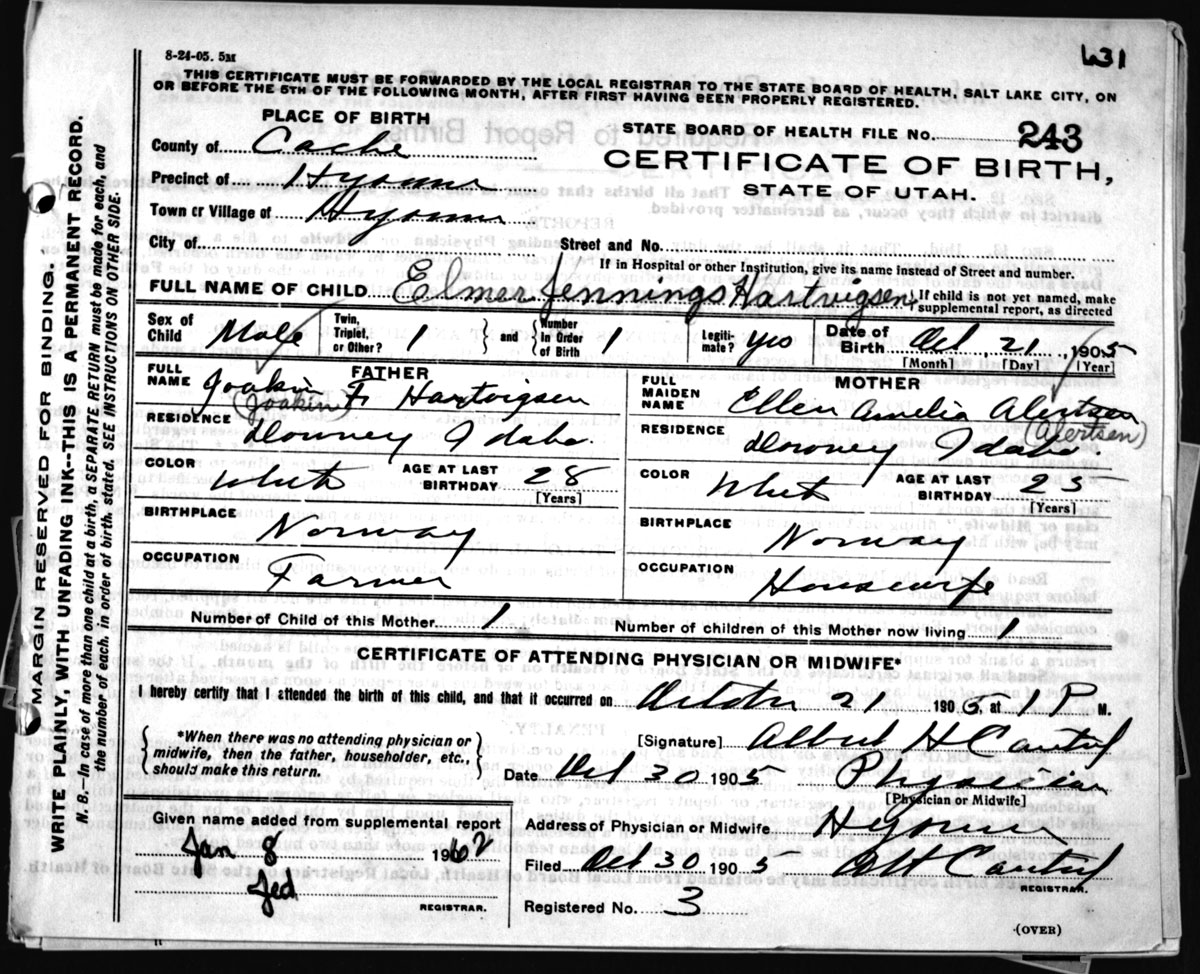 8-24-05. 5M
631
THIS CERTIFICATE MUST BE FORWARDED BY THE LOCAL REGISTRAR TO THE STATE BOARD OF HEALTH, SALT LAKE CITY, ON
OR BEFORE THE 5TH OF THE FOLLOWING MONTH, AFTER FIRST HAVING BEEN PROPERLY REGISTERED.
PLACE OF BIRTH
County of Cache
Precinct of Hyrum
Town or Village of Hyrum
STATE BOARD OF HEALTH FILE No. 243
CERTIFICATE OF BIRTH,
STATE OF UTAH.
City of Street and No.
If in Hospital or other Institution, give its name instead of Street and number.
FULL NAME OF CHILD Elmer Jennings Hartvigsen If child is not yet named, make
supplemental report, as directed
Sex of Child Male Twin, Triplet, or Other? 1 and Number In Order of Birth 1 Legiti-mate? yes Date of Birth Oct 21 1905
[Month] [Day] [Year]
FATHER
FULL NAME Joakin F. Hartvigsen
(Joakin)
RESIDENCE Downey Idaho.
COLOR White AGE AT LAST BIRTHDAY 28
[Years]
BIRTHPLACE Norway
OCCUPATION Farmer
MOTHER
FULL MAIDEN NAME Ellen Amelia Alertsen
(Alertsen)
RESIDENCE Downey Idaho.
COLOR White AGE AT LAST BIRTHDAY 23
[Years]
BIRTHPLACE Norway
OCCUPATION Housewife
Number of Child of this Mother 1 Number of children of this Mother now living 1
CERTIFICATE OF ATTENDING PHYSICIAN OR MIDWIFE*
I hereby certify that I attended the birth of this child, and that it occurred on 21 190 , at 1 P M.
*When there was no attending physician or
midwife, then the father, householder, etc.,
should make this return.
[Signature] Albert H Cantril
Date Oct 30 1905 Physician
[Physician or Midwife]
Given name added from supplemental report
Jan 8 1962
Jed
REGISTRAR.
Address of Physician or Midwife Hyrum
Filed Oct 30 1905 Cantril
REGISTRAR.
Registered No. 3
(OVER)
MARGIN RESERVED FOR BINDING.
WRITE PLAINLY, WITH UNFADING INK--THIS IS A PERMANENT RECORD.
N.B. In case of more than one child at a birth, a SEPARATE RETURN must be made for each, and
the number of each, in order of birth, stated. SEE INSTRUCTIONS ON OTHER SIDE.